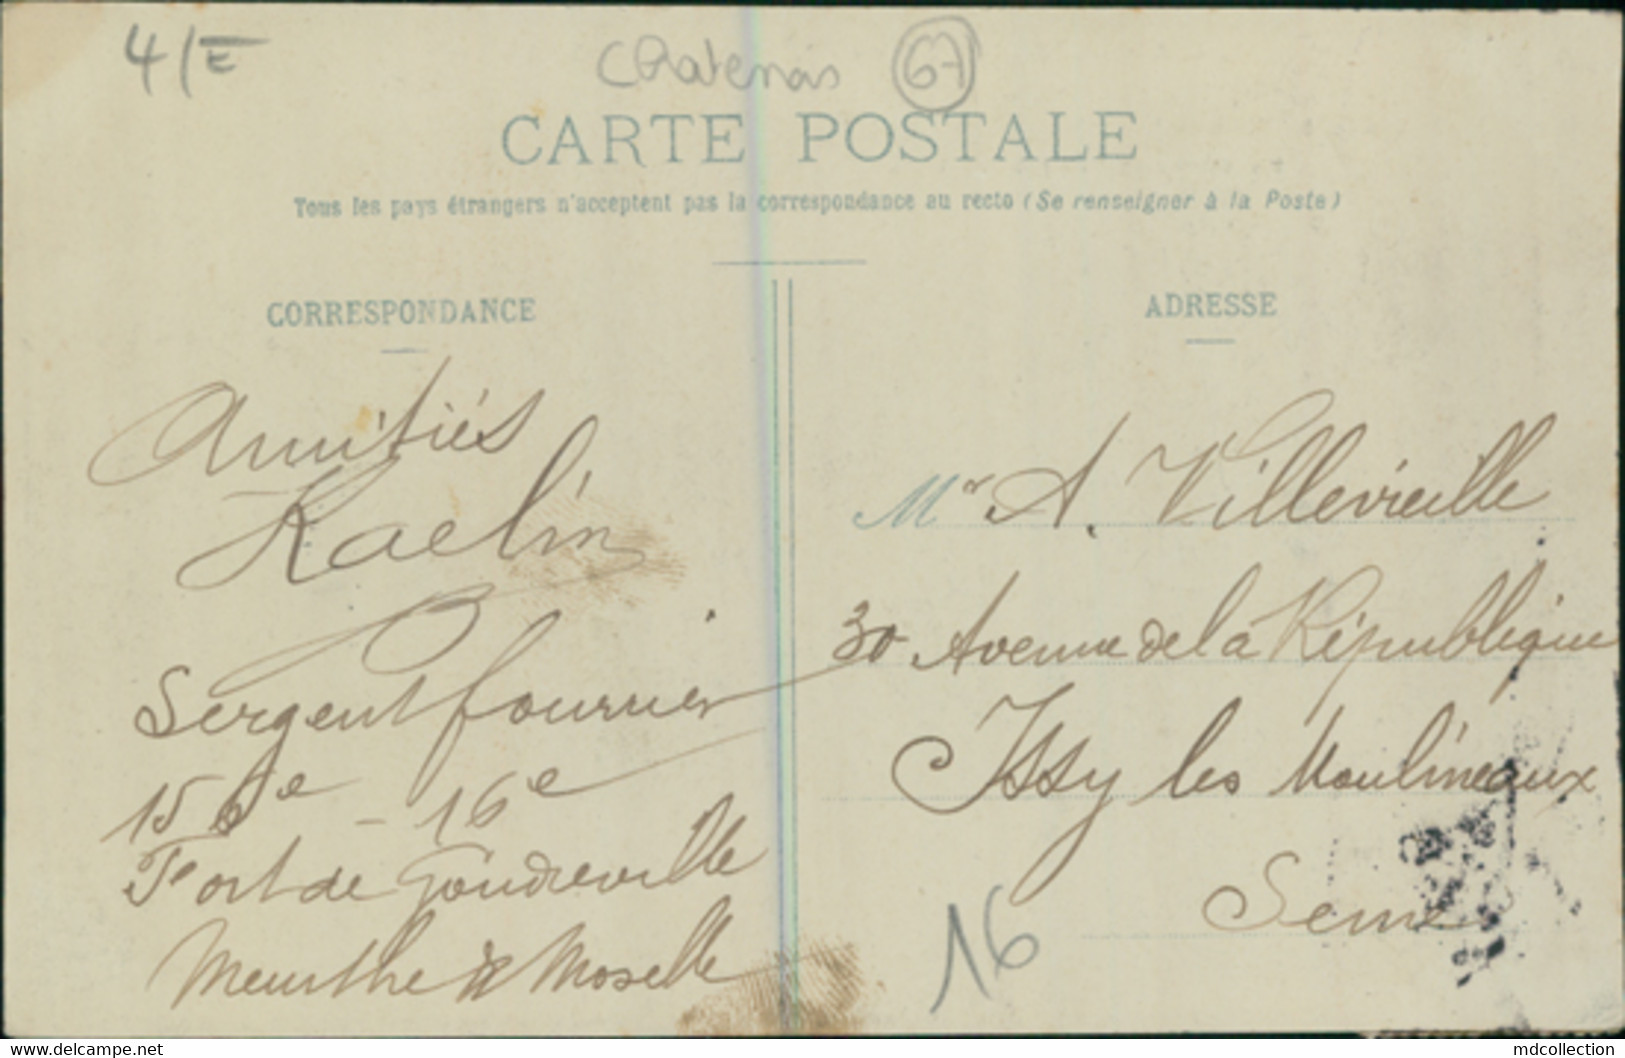 4/E
Chatenois 67
CARTE POSTALE
Tous les pays étrangers n'acceptent pas la correspondance au recto (Se renseigner à la Poste)
CORRESPONDANCE
Amitiés
Kaelin
Sergent fourrier
156e - 16e
Fort de Gondreville
Meurthe & Moselle
ADRESSE
Mr A. Villevieille
30 Avenue de la République
Issy les Moulineaux
Seine
16
www.delcampe.net
mdcollection